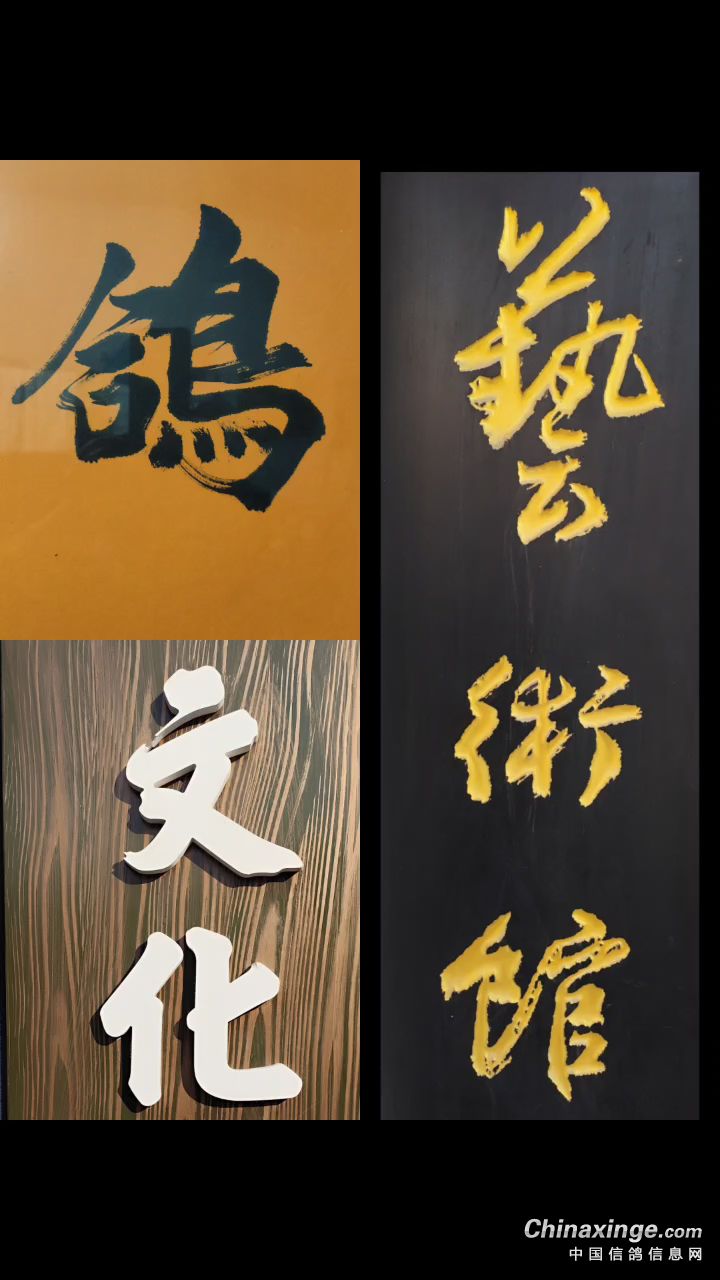 鴿
文
化
藝
術
館
Chinaxinge.com
中国信鸽信息网